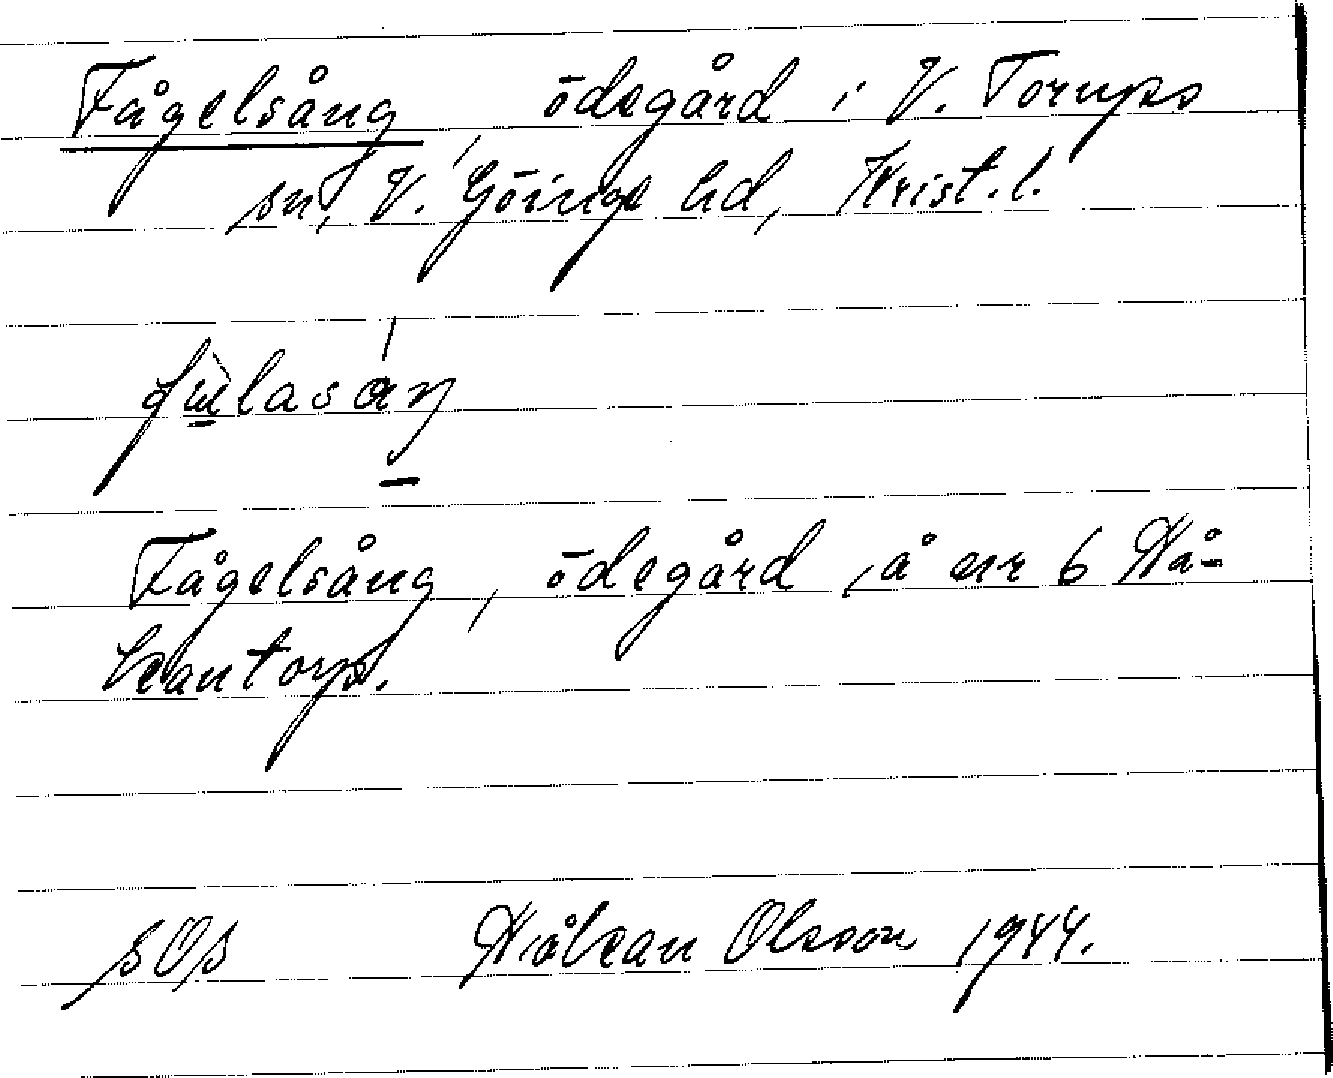 Fågelsång, ödegård i V. Torups
sn, V. Göinge hd, Krist. l.
Fågelsång, ödegård, å nr 6 Hå-
kantorp.
SOS Håkan Olsson 1944.